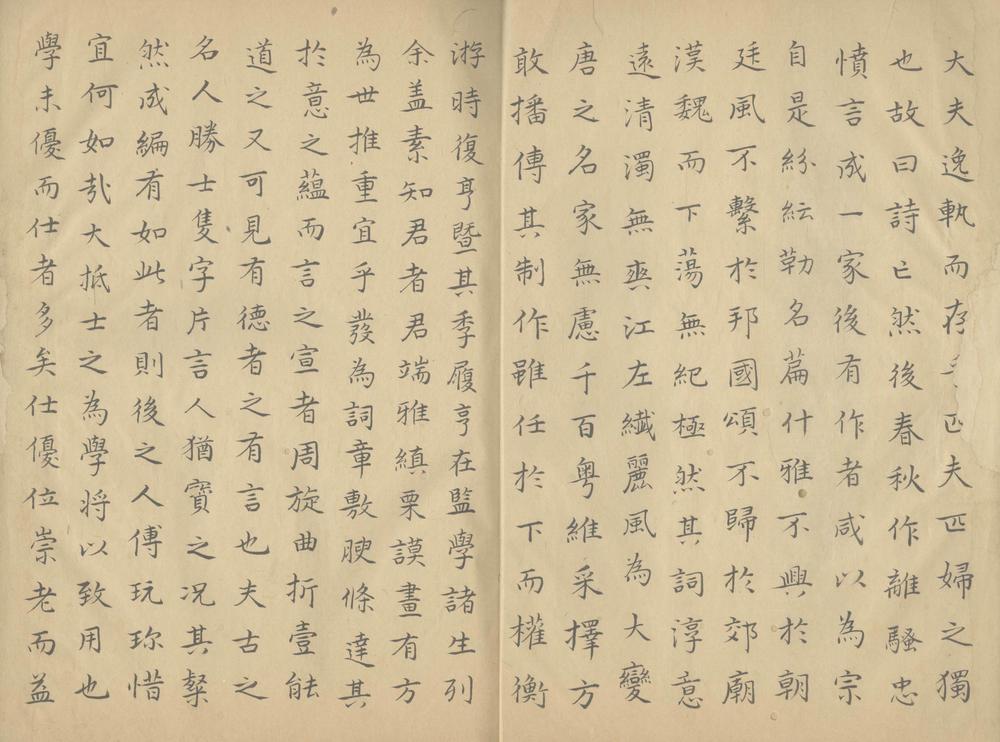 大夫逸軌而存匹夫匹婦之獨
也故曰詩亡然後春秋作離騷忠
憤言成一家後有作者咸以為宗
自是紛紜勒名篇什雅不興於朝
廷風不繫於邦國頌不歸於郊廟
漢魏而下蕩無紀極然其詞淳意
遠清濁無爽江左纎麗風為大變
唐之名家無慮千百粤維采擇方
敢播傳其制作雖任於下而權衡
游時復亨暨其季履亨在監學諸生列
余盖素知君者君端雅縝栗謨畫有方
為世推重宜乎發為詞章敷腴條達其
於意之蘊而言之宣者周旋曲折壹能
道之又可見有德者之有言也夫古之
名人勝士隻字片言人猶寳之况其粲
然成編有如此者則後之人傳玩珎惜
宜何如㢤大抵士之為學将以致用也
學未優而仕者多矣仕優位崇老而益